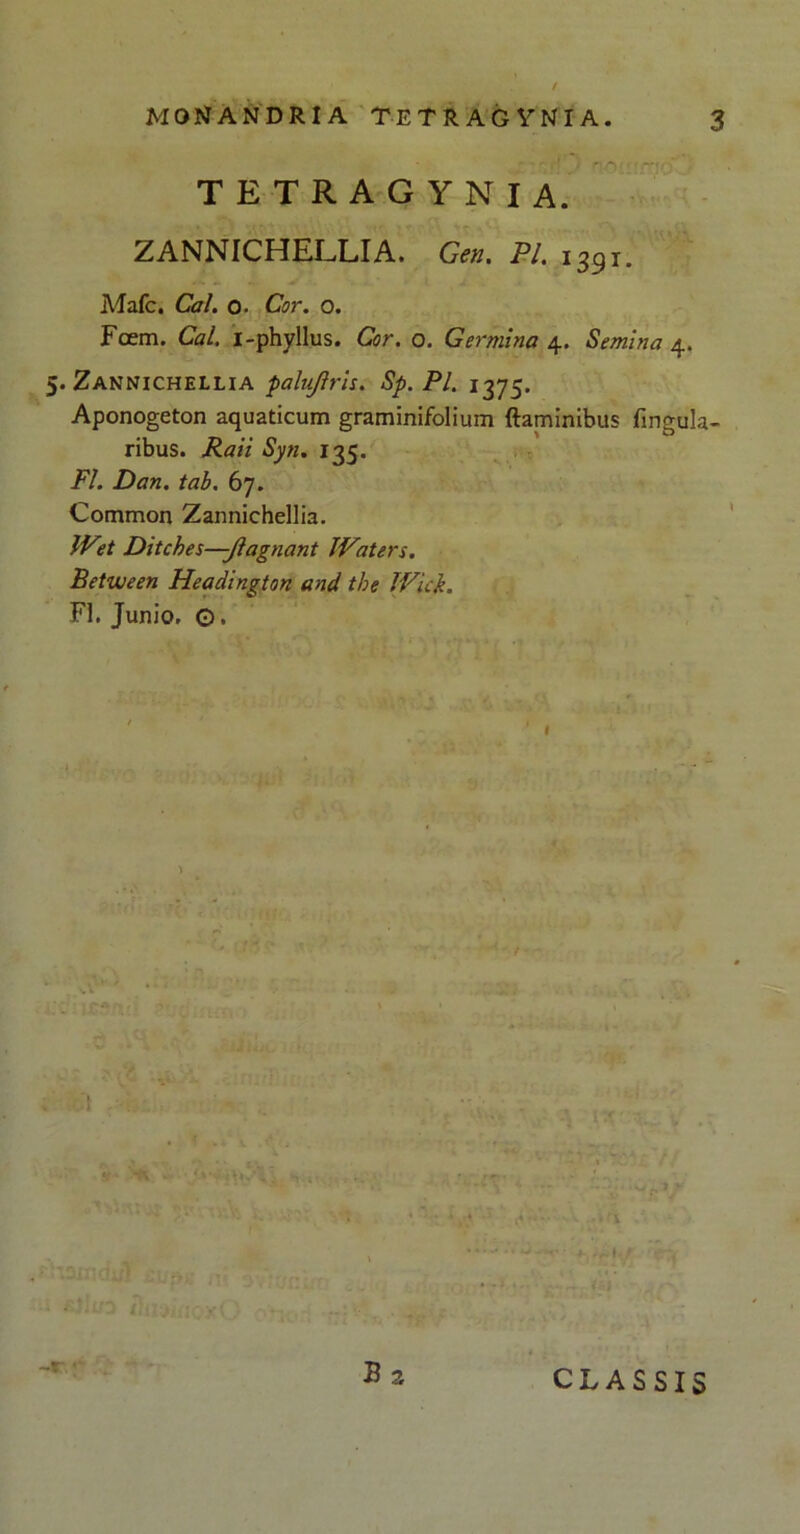 MONANDRIA TETRAGYNIA. 3
TETRAGYNIA.
ZANNICHELLIA. Gen. Pl. 1391.
Maſc. Cal. 0. Cor. 0.
Fœm. Cal. 1-phyllus. Cor. 0. Germina 4. Semina 4.
5. ZANNICHELLIA paluſtris. Sp. Pl. 1375.
Aponogeton aquaticum graminifolium ſtaminibus ſingula-
ribus. Raii Syn. 135.
Fl. Dan. tab. 67.
Common Zannichellia.
Wet Ditches—ſtagnant Waters.
Between Headington and the Wick.
Fl. Junio. ☉.
B 2 CLASSIS